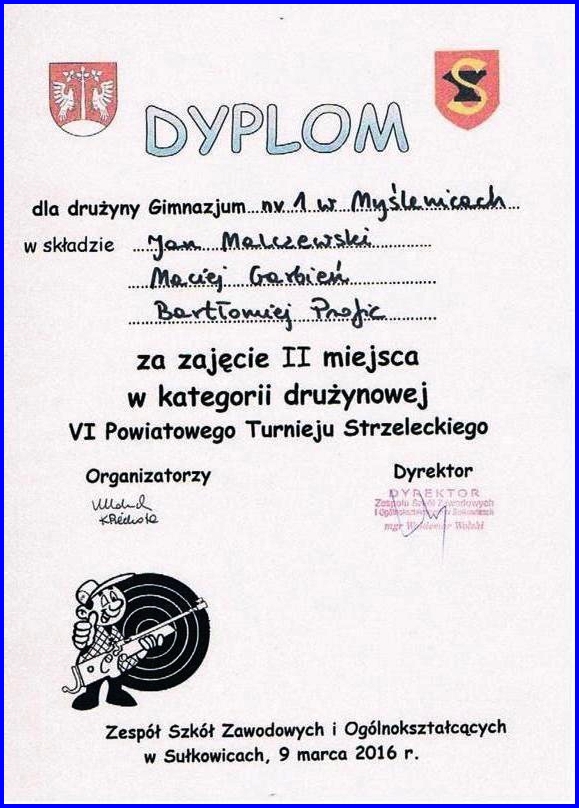 DYPLOM
dla drużyny Gimnazjum nr 1 w Myślenicach
w składzie Jan Malczewski
Maciej Garbień
Bartłomiej Profic
za zajęcie II miejsca
w kategorii drużynowej
VI Powiatowego Turnieju Strzeleckiego
Organizatorzy
Dyrektor
DYREKTOR
Zespołu Szkół Zawodowych
i Ogólnokształcących w Sułkowicach
mgr Waldemar Wolski
Zespół Szkół Zawodowych i Ogólnokształcących
w Sułkowicach, 9 marca 2016 r.